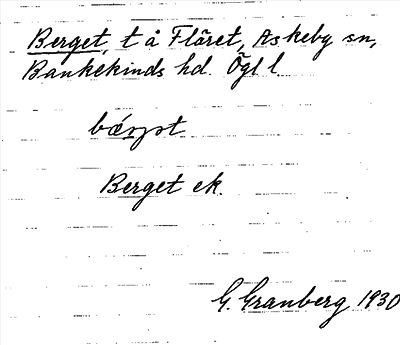 Berget, t å Flåret, Askeby sn,
Bankekinds hd. Ögl l
Berget ek.
G. Granberg 1930